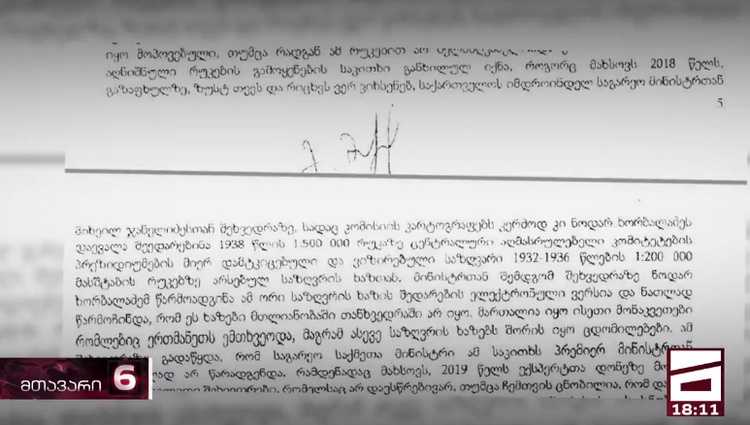 იყო მოპოვებული, თუმცა რადგან ამ რუკებით არ
აღნიშნული რუკების გამოყენების საკითხი განხილულ იქნა, როგორც მახსოვს 2018 წელს,
გაზაფხულზე, ზუსტ თვეს და რიცხვს ვერ ვიხსენებ, საქართველოს იმდროინდელ საგარეო მინისტრთან
5
მიხეილ ჯანელიძესთან შეხვედრაზე, სადაც კომისიის კარტოგრაფებს კერძოდ კი ნოდარ ხორბალაძეს
დაევალა შეედარებინა 1938 წლის 1:500 000 რუკაზე ცენტრალური აღმასრულებელი კომიტეტების
პრეზიდიუმების მიერ დამტკიცებული და ვიზირებული საზღვარი 1932-1936 წლების 1:200 000
მასშტაბის რუკებზე არსებულ საზღვრის ხაზთან. მინისტრთან შემდგომ შეხვედრაზე ნოდარ
ხორბალაძემ წარმოადგინა ამ ორი საზღვრის ხაზის შედარების ელექტრონული ვერსია და ნათლად
წარმოჩინდა, რომ ეს ხაზები მთლიანობაში თანხვედრაში არ იყო. მართალია იყო ისეთი მონაკვეთები
რომლებიც ერთმანეთს ემთხვეოდა, მაგრამ ასევე საზღვრის ხაზებს შორის იყო ცდომილებები. ამ
შეხვედრაზე გადაწყდა, რომ საგარეო საქმეთა მინისტრი ამ საკითხს პრემიერ მინისტრთან
არ წარადგენდა. რამდენადაც მახსოვს, 2019 წელს ექსპერტთა დონეზე
შეხვედრები, რომელსაც არ დავსწრებივარ, თუმცა ჩემთვის ცნობილია, რომ
მთავარი 6
18:11